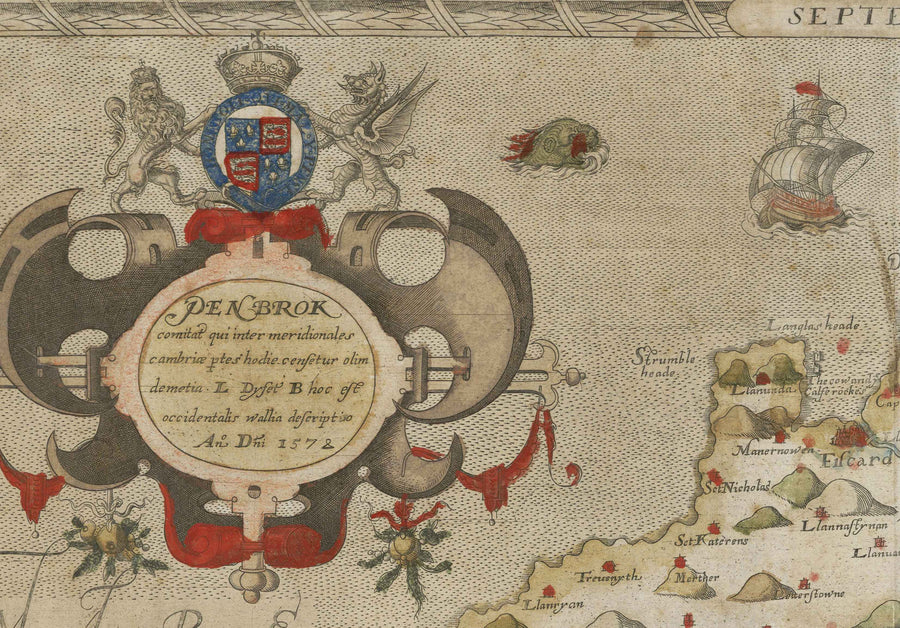 SEPTE
PENBROK
comitat qui inter meridionales
cambriæ ptes hodie censetur olim
demetia. L Dyfet B hoc est
occidentalis wallia descriptio
Ano Dni 1578
Langlas heade
Strumble
heade
Llanunda
The cow and
Calf rockes
Cap
Manernowen
Fiscard
Set Nicholas
Llannastynan
Set Katerens
Llanua
Treuenyth
Merther
Leterstowne
Llanryan